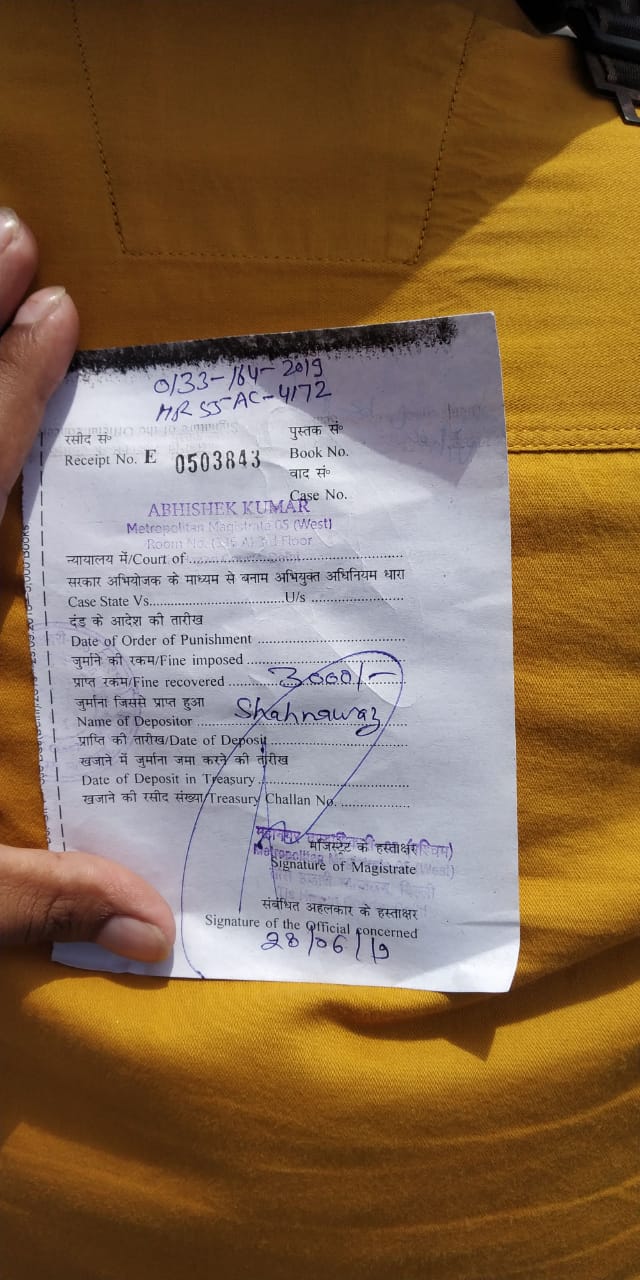 0133-164-2019
HR 55-AC-4172
रसीद सं॰ पुस्तक सं॰
Receipt No. E 0503843 Book No.
वाद सं॰
Case No.
ABHISHEK KUMAR
Metropolitan Magistrate 05 (West)
Room No. Floor
न्यायालय में/Court of
सरकार अभियोजक के माध्यम से बनाम अभियुक्त अधिनियम धारा
Case State Vs. U/s
दंड के आदेश की तारीख
Date of Order of Punishment
जुर्माने की रकम/Fine imposed
प्राप्त रकम/Fine recovered 3000/-
जुर्माना जिससे प्राप्त हुआ
Name of Depositor Shahnawaz
प्राप्ति की तारीख/Date of Deposit
खजाने में जुर्माना जमा करने की तारीख
Date of Deposit in Treasury
खजाने की रसीद संख्या/Treasury Challan No.
मजिस्ट्रेट के हस्ताक्षर
Metropolitan (West)
Signature of Magistrate
संबंधित अहलकार के हस्ताक्षर
Signature of the Official concerned
28/06/19